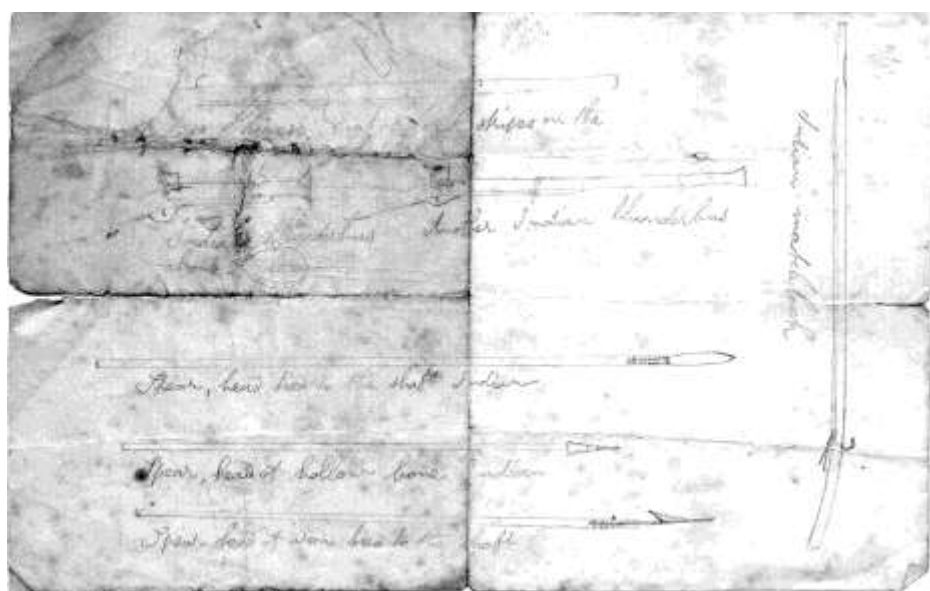 ships on the
Indian Blunderbus
Another Indian Blunderbus
Indian matchlock
Spear, head tied to the shaft Indian
Spear, head of hollow bone Indian
Spear head of iron tied to the shaft